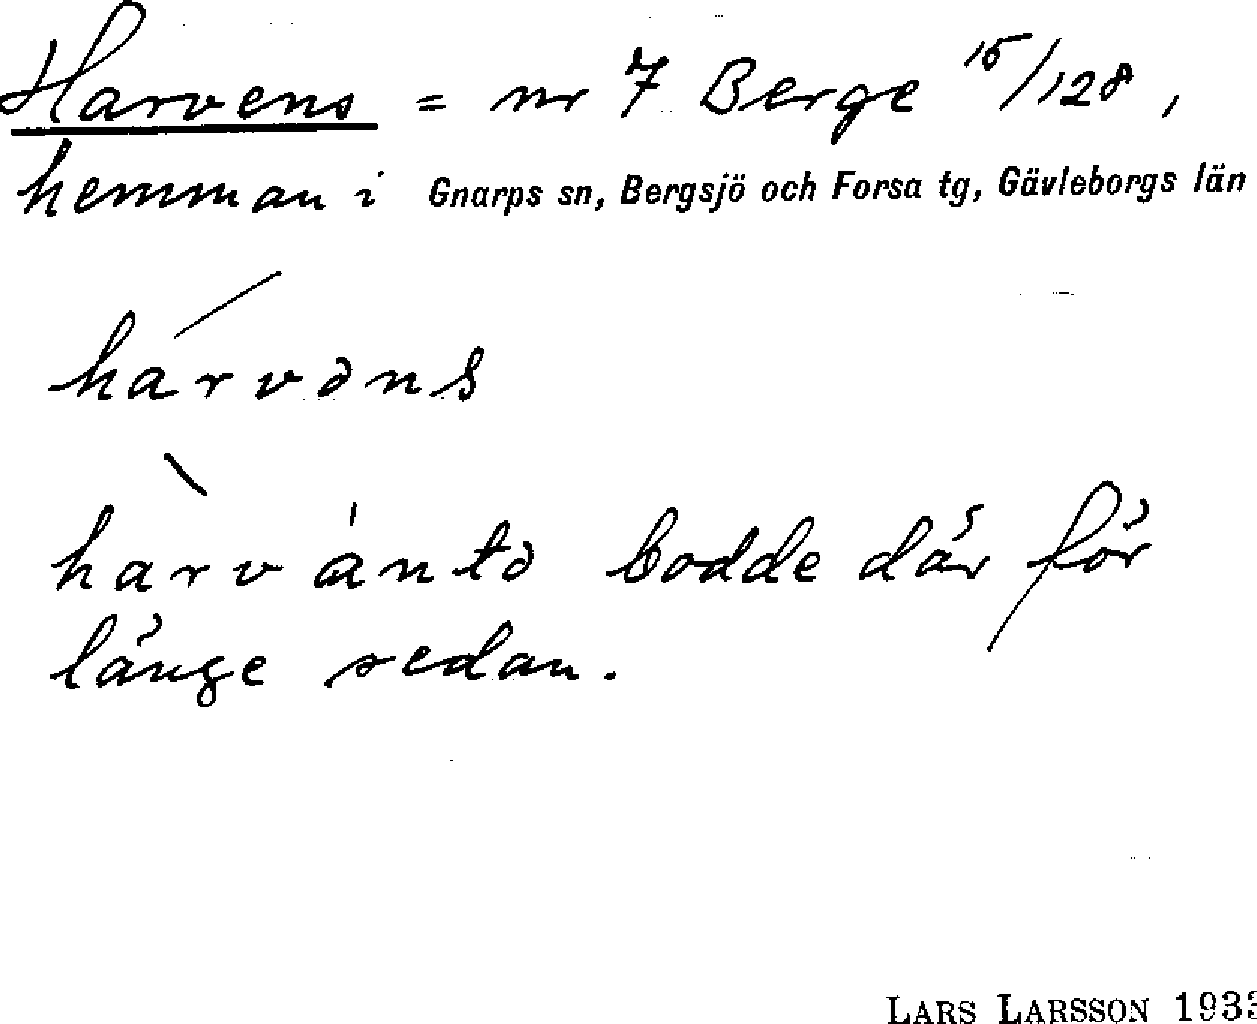 Harvens = nr 7 Berge 15/128,
hemman i Gnarps sn, Bergsjö och Forsa tg, Gävleborgs län
hárvəns
hàrvántə bodde där för
länge sedan.
LARS LARSSON